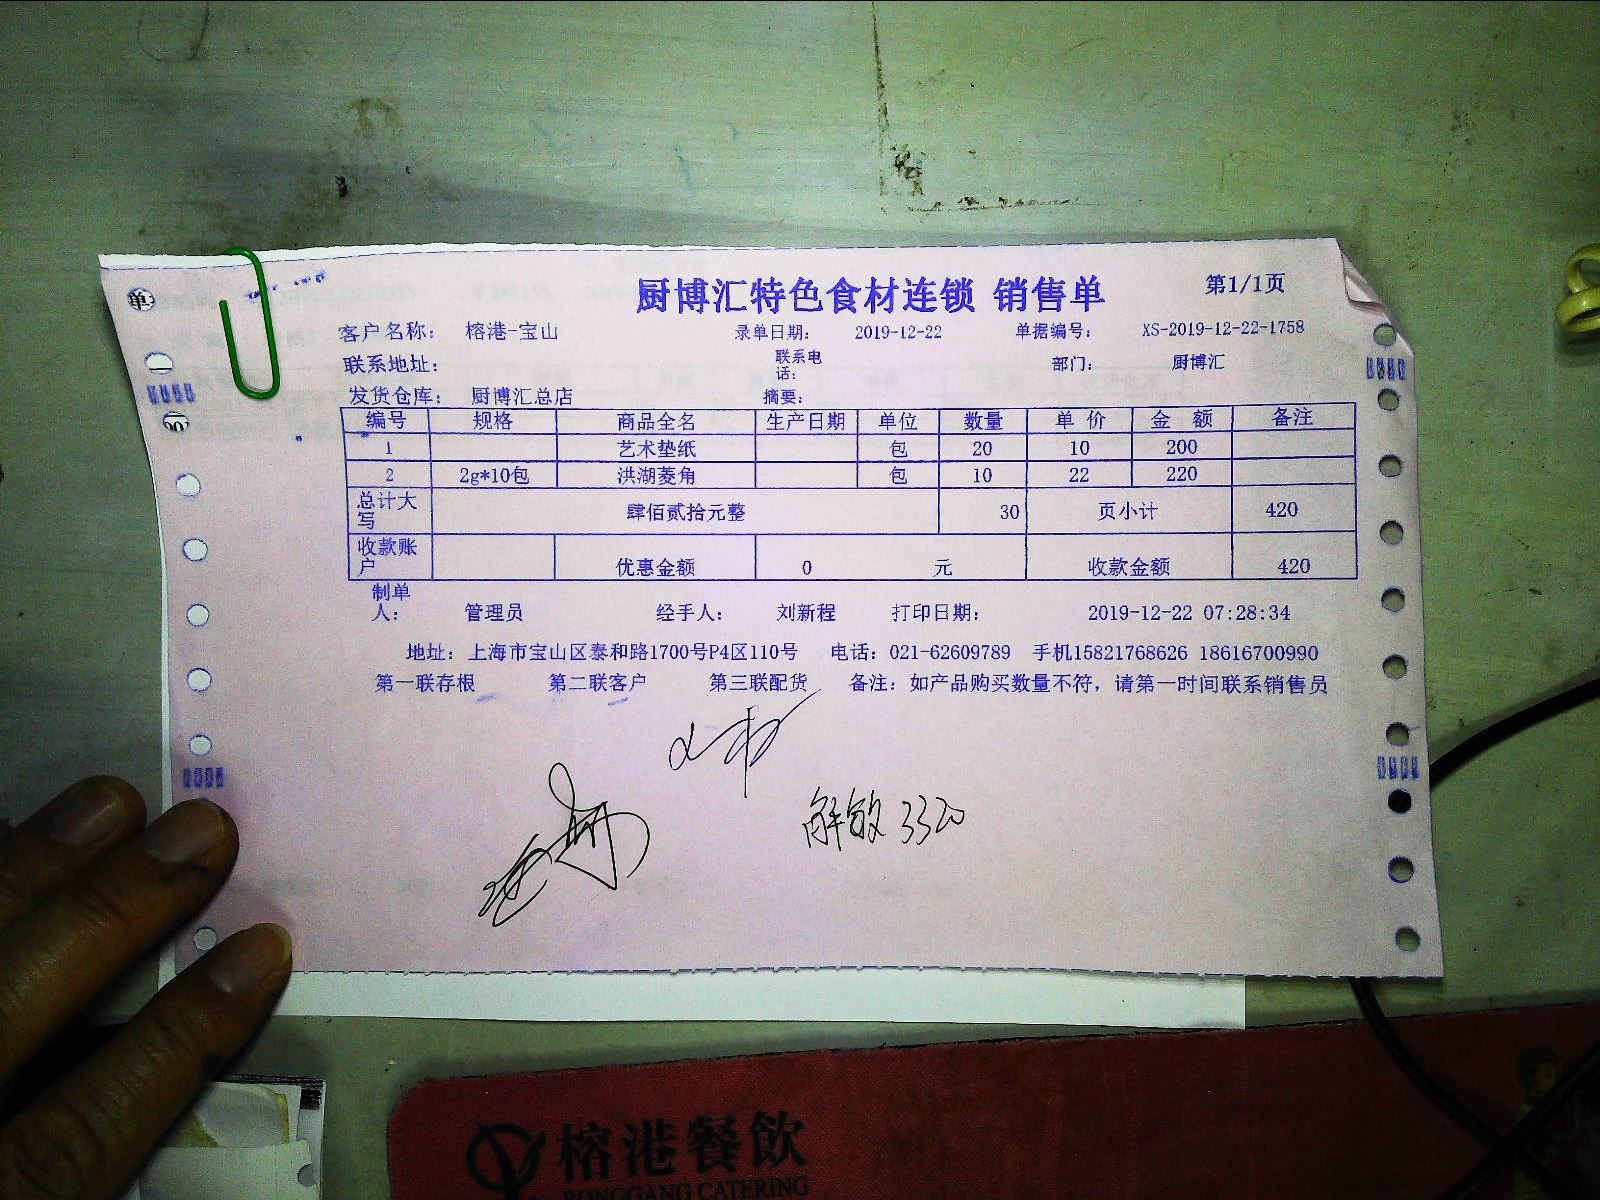 厨博汇特色食材连锁 销售单 第1/1页
客户名称： 榕港-宝山 录单日期： 2019-12-22 单据编号： XS-2019-12-22-1758
联系地址： 联系电话： 部门： 厨博汇
发货仓库： 厨博汇总店 摘要：
编号 规格 商品全名 生产日期 单位 数量 单价 金额 备注
1 艺术垫纸 包 20 10 200
2 2g*10包 洪湖菱角 包 10 22 220
总计大写 肆佰贰拾元整 30 页小计 420
收款账户 优惠金额 0 元 收款金额 420
制单人： 管理员 经手人： 刘新程 打印日期： 2019-12-22 07:28:34
地址：上海市宝山区泰和路1700号P4区110号 电话：021-62609789 手机15821768626 18616700990
第一联存根 第二联客户 第三联配货 备注：如产品购买数量不符，请第一时间联系销售员
解敏 3320
榕港餐飲
RONGGANG CATERING